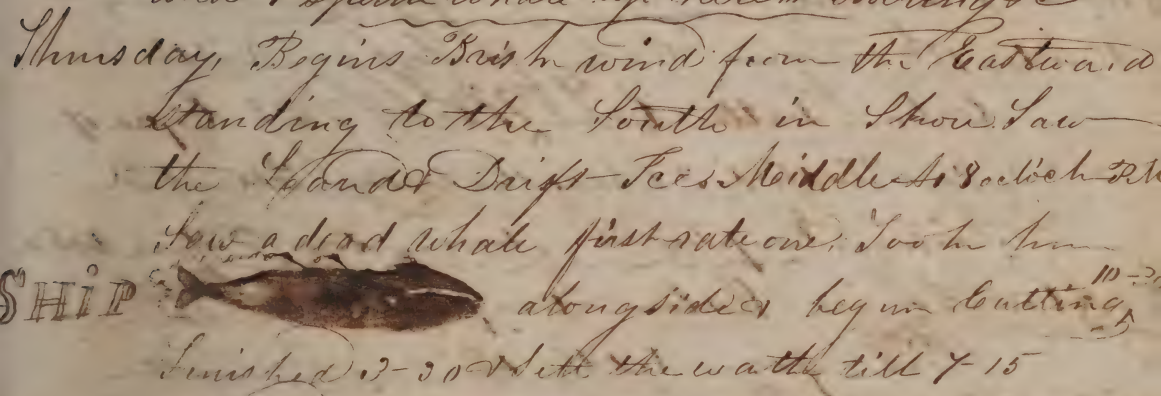 Thursday, Begins Brisk wind from the Eastward
Standing to the South in Shore Saw
the Land & Drift Ice. Middle At 8 oclock PM
Saw a dead whale first rate one. Took him
SHIP alongside & begun Cutting 10-30
Finished 3-30 & Sett the watch till 7-15